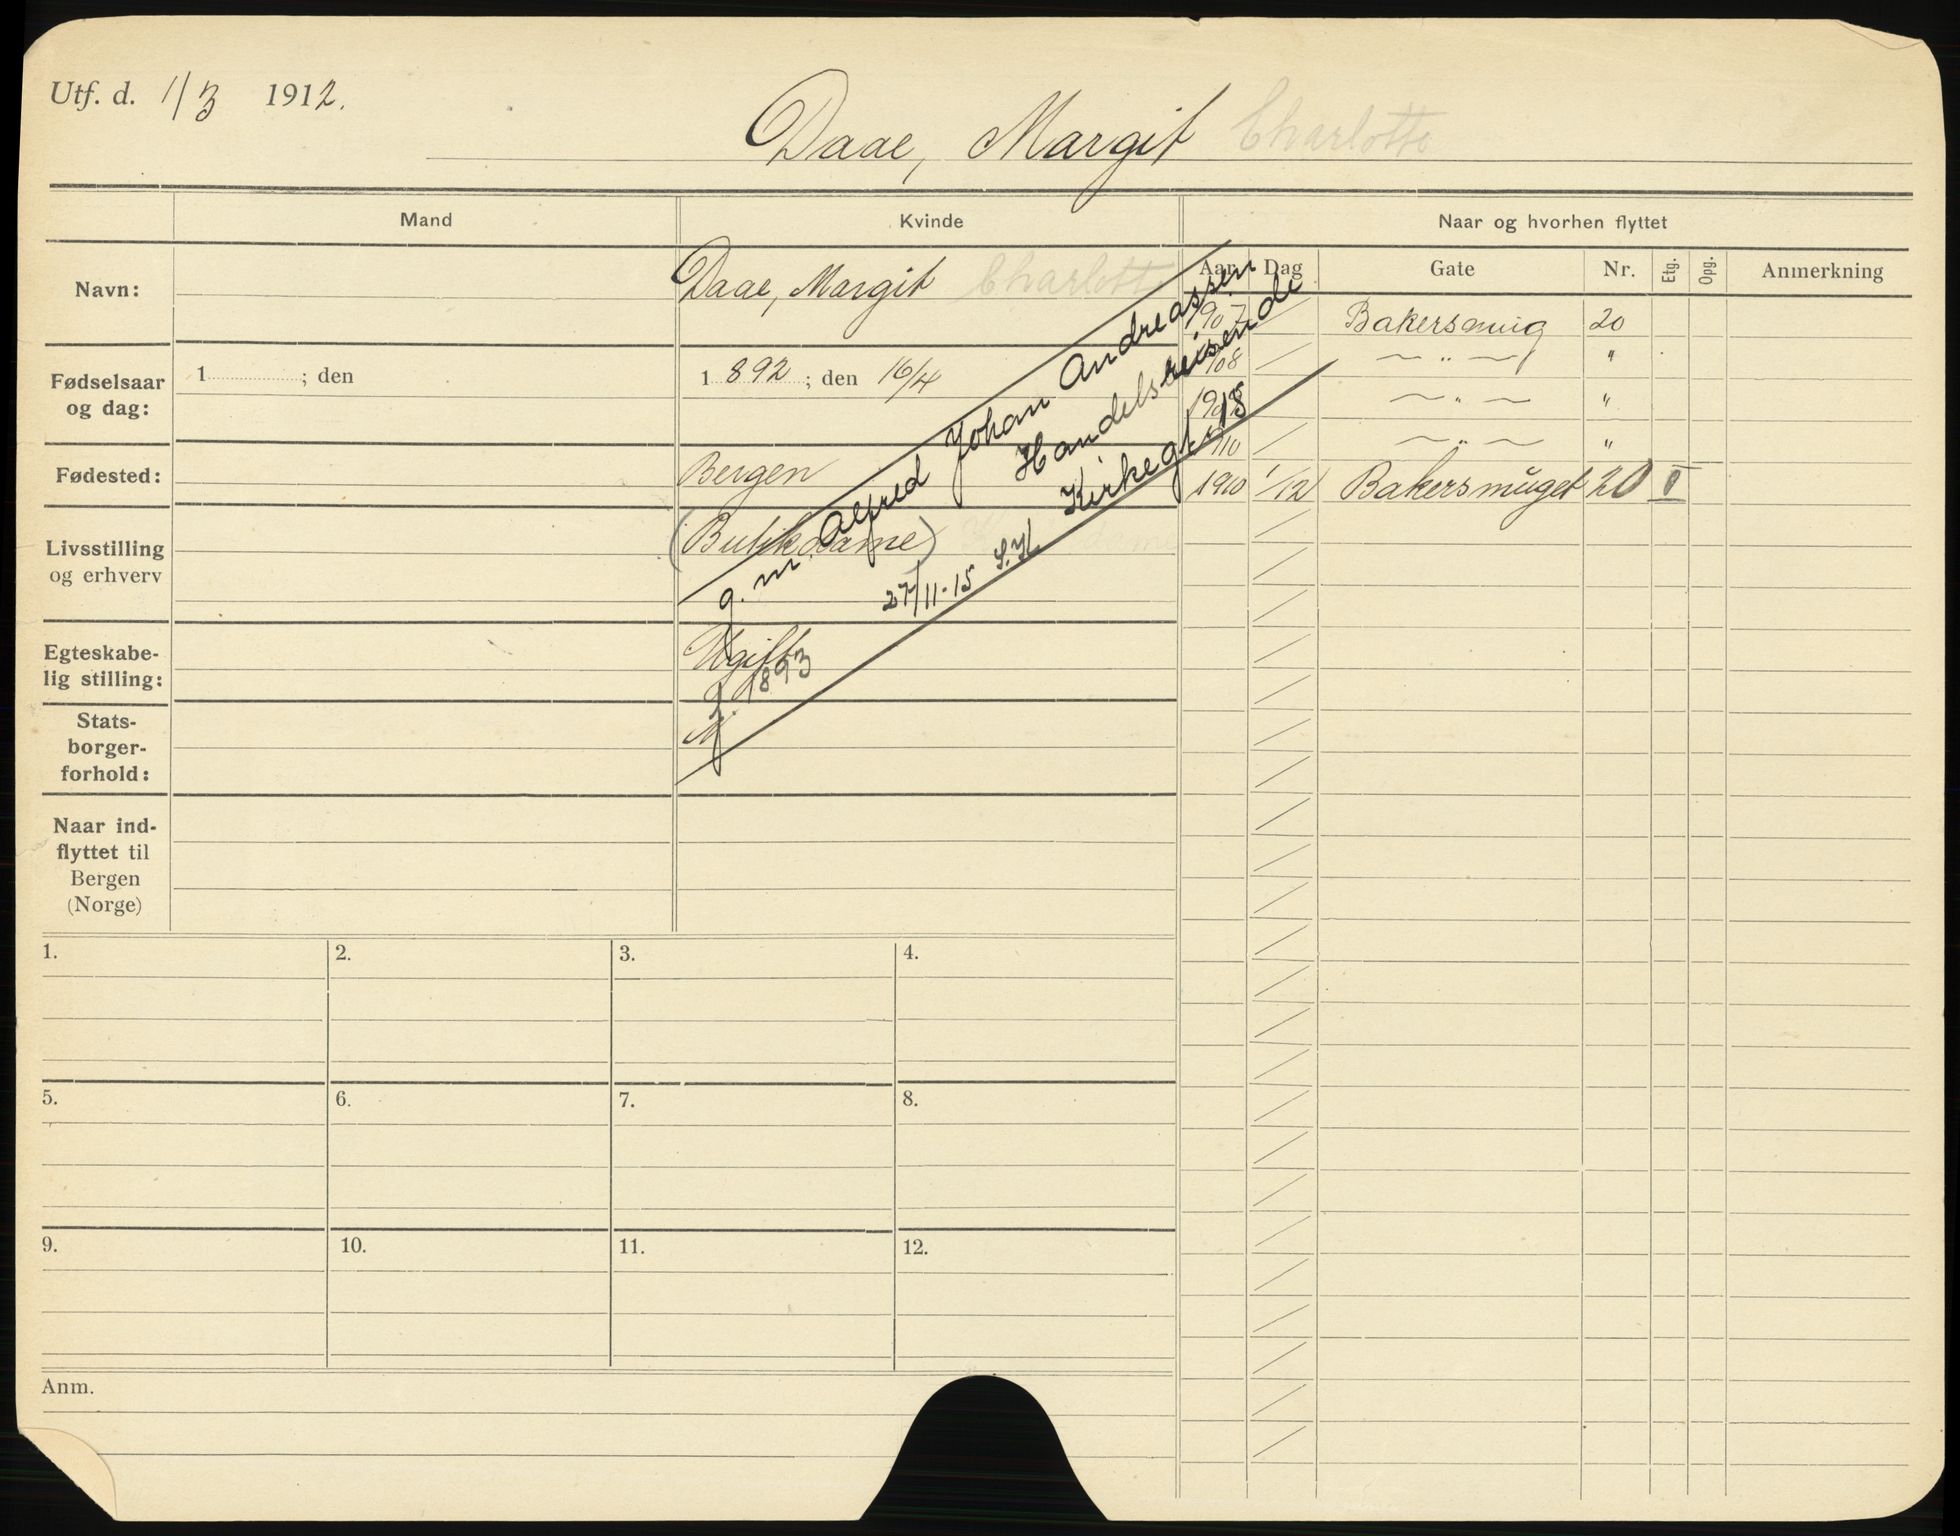 Utf. d. 1/3 1912.
Daae, Margit Charlotte
Mand
Kvinde
Naar og hvorhen flyttet
Navn:
Daae, Margit Charlotte
Fødselsaar
og dag:
1 ; den
1 892 ; den 16/4
Fødested:
Bergen
Livsstilling
og erhverv
(Butikdame)
Egteskabe-
lig stilling:
Ugift
Stats-
borger-
forhold:
N
Naar ind-
flyttet til
Bergen
(Norge)
g. m. Alfred Johan Andreassen
Handelsreisende
f. 1893
27/11-15 S.K. Kirkegt. 18
Aar Dag Gate Nr. Etg. Opg. Anmerkning
1907 Bakersmug 20
1908 — " — "
1909 — " — "
1910 — " — "
1910 1/12 Bakersmuget 20 II
1. 2. 3. 4.
5. 6. 7. 8.
9. 10. 11. 12.
Anm.